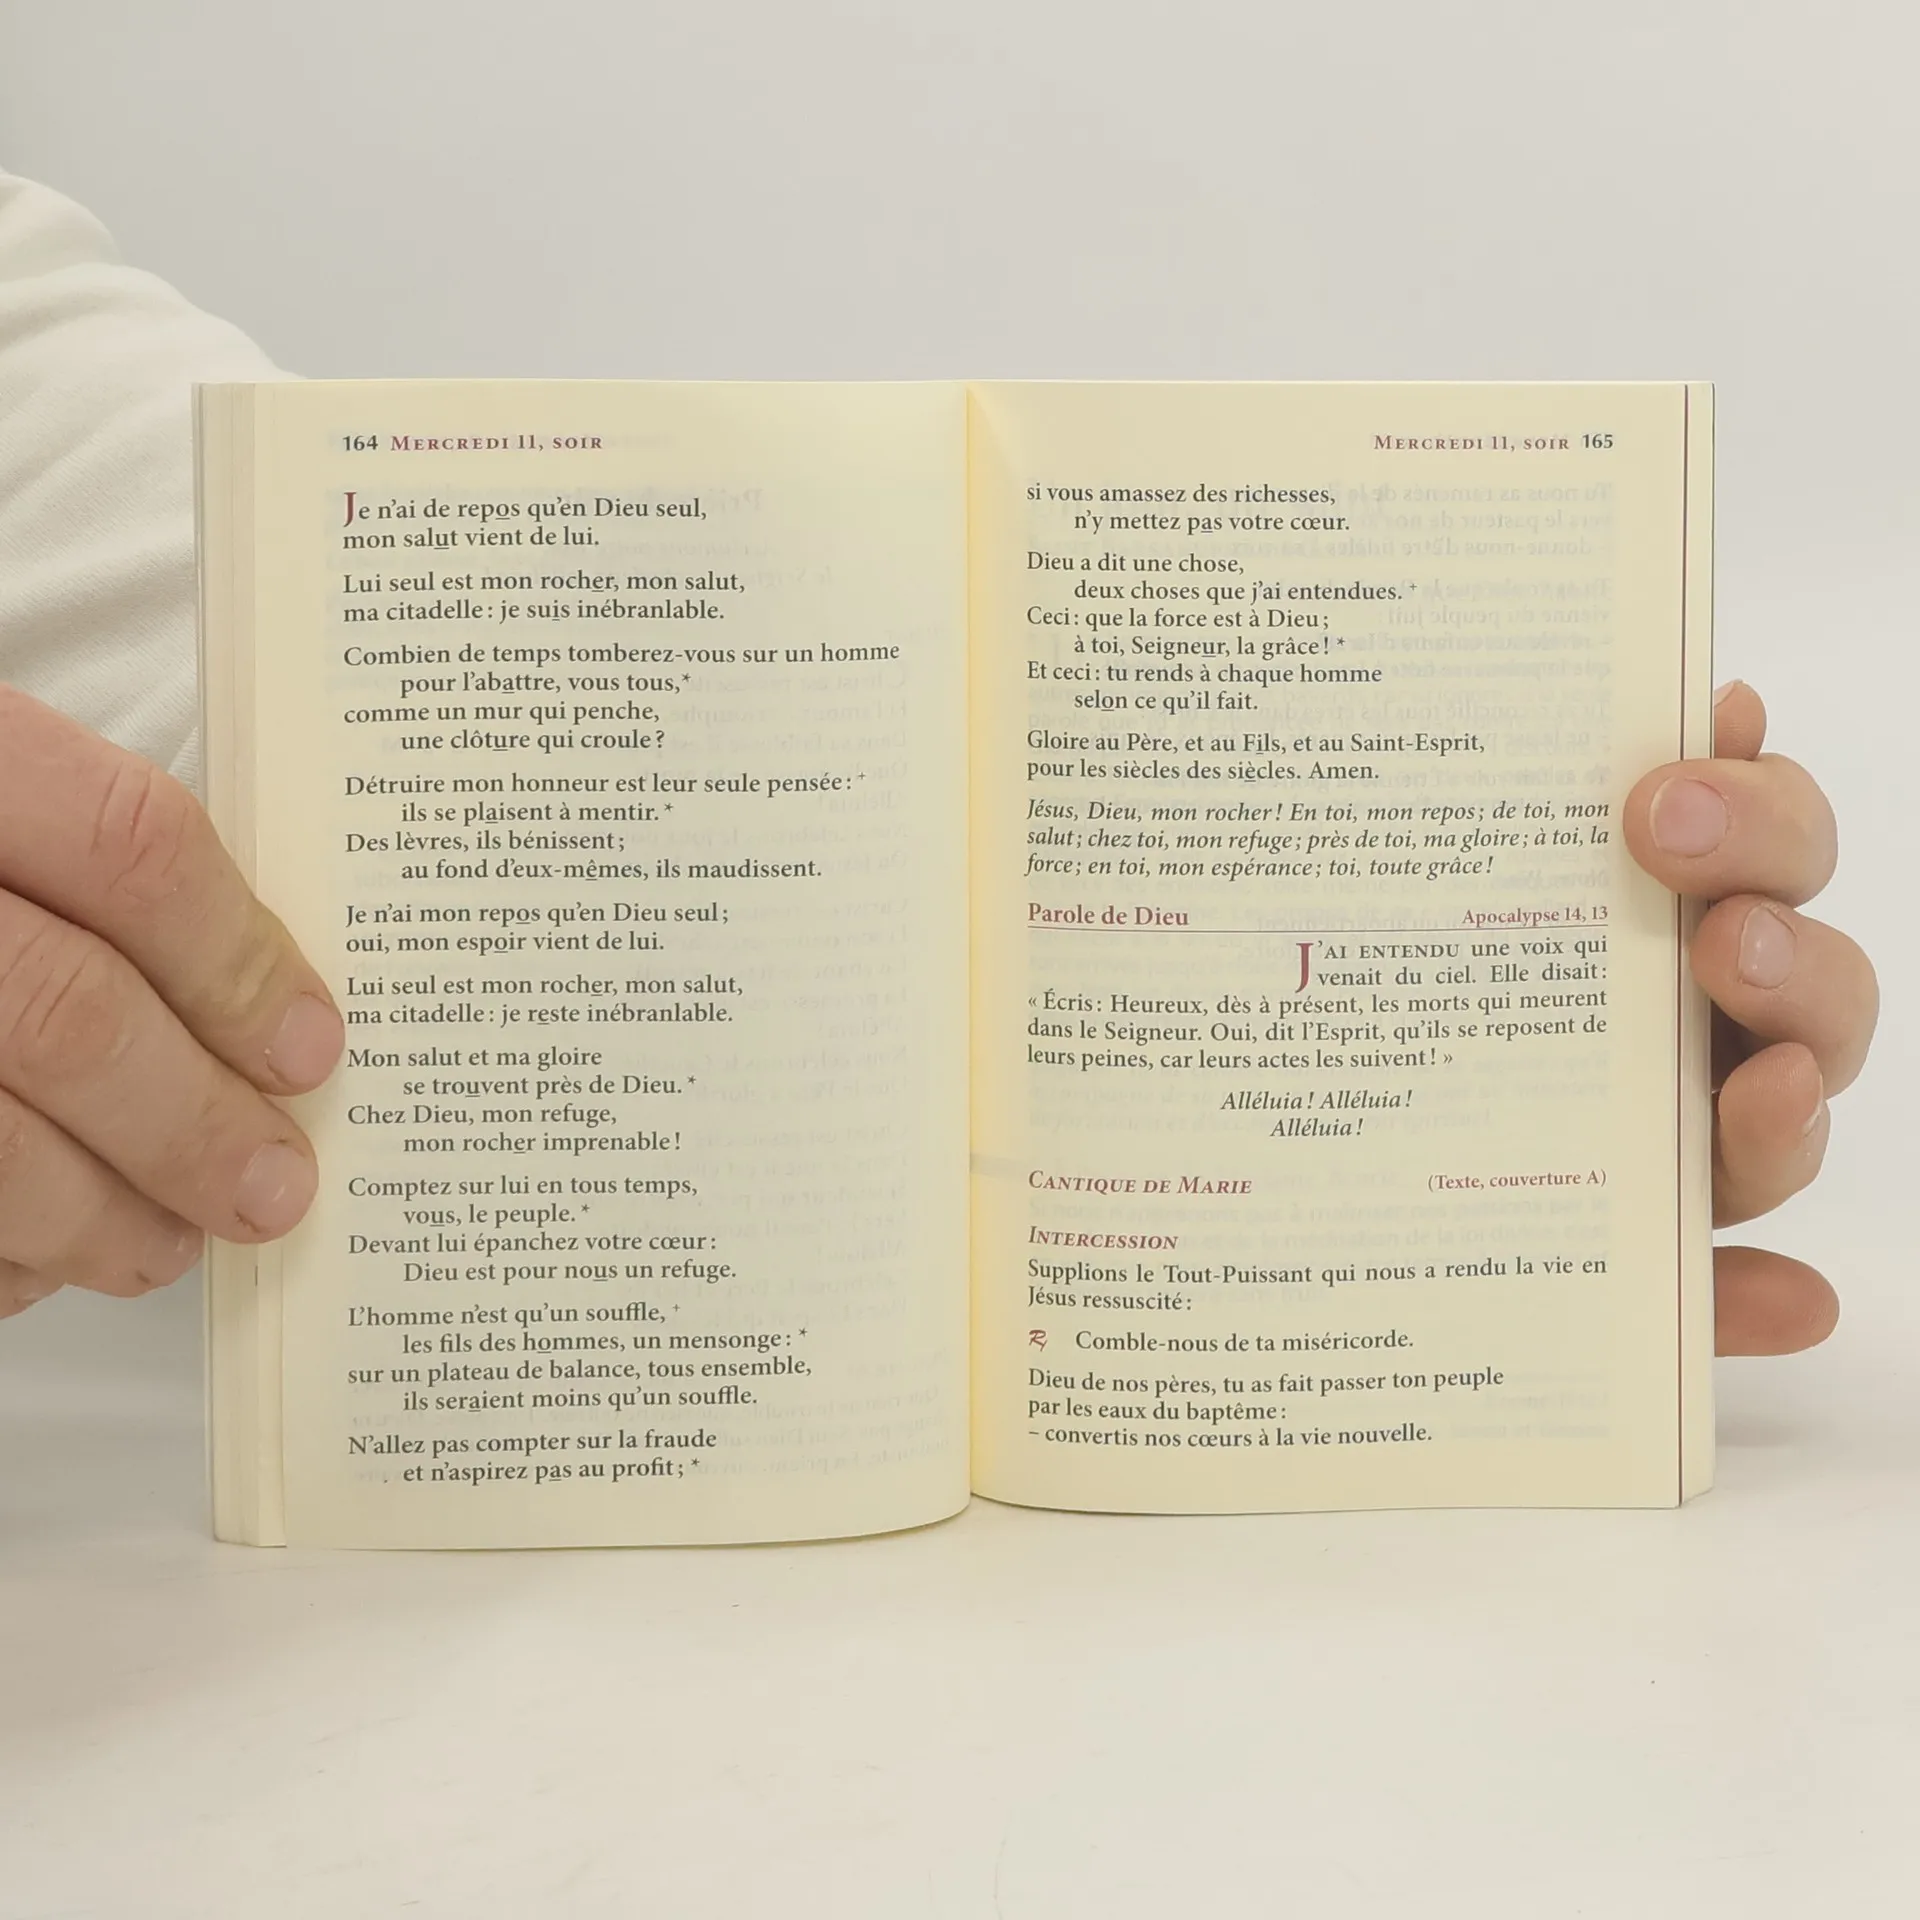 164 MERCREDI 11, SOIR
Je n'ai de repos qu'en Dieu seul,
mon salut vient de lui.
Lui seul est mon rocher, mon salut,
ma citadelle : je suis inébranlable.
Combien de temps tomberez-vous sur un homme
pour l'abattre, vous tous,*
comme un mur qui penche,
une clôture qui croule ?
Détruire mon honneur est leur seule pensée : +
ils se plaisent à mentir. *
Des lèvres, ils bénissent ;
au fond d'eux-mêmes, ils maudissent.
Je n'ai mon repos qu'en Dieu seul ;
oui, mon espoir vient de lui.
Lui seul est mon rocher, mon salut,
ma citadelle : je reste inébranlable.
Mon salut et ma gloire
se trouvent près de Dieu. *
Chez Dieu, mon refuge,
mon rocher imprenable !
Comptez sur lui en tous temps,
vous, le peuple. *
Devant lui épanchez votre cœur :
Dieu est pour nous un refuge.
L'homme n'est qu'un souffle, +
les fils des hommes, un mensonge : *
sur un plateau de balance, tous ensemble,
ils seraient moins qu'un souffle.
N'allez pas compter sur la fraude
et n'aspirez pas au profit ; *
MERCREDI 11, SOIR 165
si vous amassez des richesses,
n'y mettez pas votre cœur.
Dieu a dit une chose,
deux choses que j'ai entendues. +
Ceci : que la force est à Dieu ;
à toi, Seigneur, la grâce ! *
Et ceci : tu rends à chaque homme
selon ce qu'il fait.
Gloire au Père, et au Fils, et au Saint-Esprit,
pour les siècles des siècles. Amen.
Jésus, Dieu, mon rocher ! En toi, mon repos ; de toi, mon
salut ; chez toi, mon refuge ; près de toi, ma gloire ; à toi, la
force ; en toi, mon espérance ; toi, toute grâce !
Parole de Dieu Apocalypse 14, 13
J'AI ENTENDU une voix qui
venait du ciel. Elle disait :
« Écris : Heureux, dès à présent, les morts qui meurent
dans le Seigneur. Oui, dit l'Esprit, qu'ils se reposent de
leurs peines, car leurs actes les suivent ! »
Alléluia ! Alléluia !
Alléluia !
CANTIQUE DE MARIE (Texte, couverture A)
INTERCESSION
Supplions le Tout-Puissant qui nous a rendu la vie en
Jésus ressuscité :
℟ Comble-nous de ta miséricorde.
Dieu de nos pères, tu as fait passer ton peuple
par les eaux du baptême :
– convertis nos cœurs à la vie nouvelle.